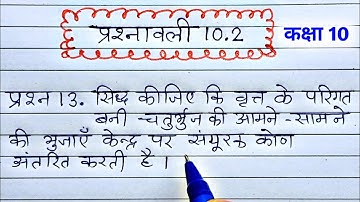 प्रश्नावली 10.2 कक्षा 10
प्रश्न 13. सिद्ध कीजिए कि वृत्त के परिगत
बनी चतुर्भुज की आमने-सामने
की भुजाएँ केन्द्र पर संपूरक कोण
अंतरित करती है ।